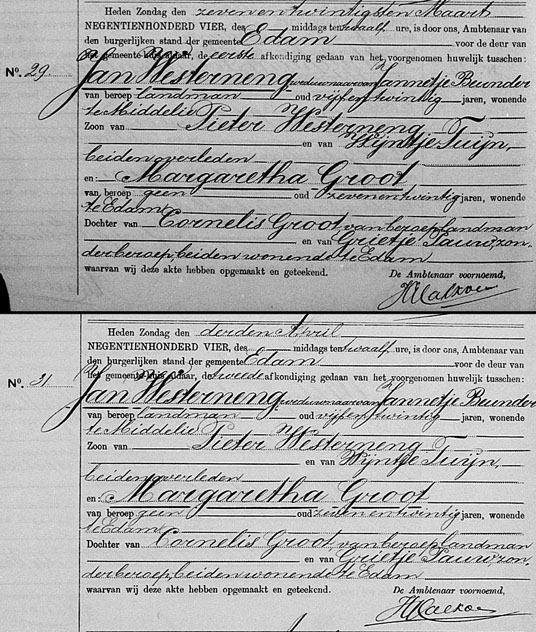 Heden Zondag den zevenentwintigsten Maart
NEGENTIENHONDERD VIER, des middags ten twaalf ure, is door ons, Ambtenaar van
den burgerlijken stand der gemeente Edam voor de deur van
het gemeente-huis aldaar, de eerste afkondiging gedaan van het voorgenomen huwelijk tusschen:
No. 29. Jan Westerneng weduwnaar van Jannetje Bunder
van beroep landman oud vijfentwintig jaren, wonende
te Middelie
Zoon van Pieter Westerneng
en van Wijntje Tuijn,
beiden overleden
en: Margaretha Groot
van beroep geen oud zevenentwintig jaren, wonende
te Edam
Dochter van Cornelis Groot, van beroep landman
en van Grietje Pauw, zon-
der beroep, beiden wonende te Edam
waarvan wij deze akte hebben opgemaakt en geteekend. De Ambtenaar voornoemd,
Heden Zondag den derden April
NEGENTIENHONDERD VIER, des middags ten twaalf ure, is door ons, Ambtenaar van
den burgerlijken stand der gemeente Edam voor de deur van
het gemeente-huis aldaar, de tweede afkondiging gedaan van het voorgenomen huwelijk tusschen:
No. 31 Jan Westerneng weduwnaar van Jannetje Bunder
van beroep landman oud vijfentwintig jaren, wonende
te Middelie
Zoon van Pieter Westerneng
en van Wijntje Tuijn,
beiden overleden
en: Margaretha Groot
van beroep geen oud zevenentwintig jaren, wonende
te Edam
Dochter van Cornelis Groot, van beroep landman
en van Grietje Pauw, zon-
der beroep, beiden wonende te Edam
waarvan wij deze akte hebben opgemaakt en geteekend. De Ambtenaar voornoemd,